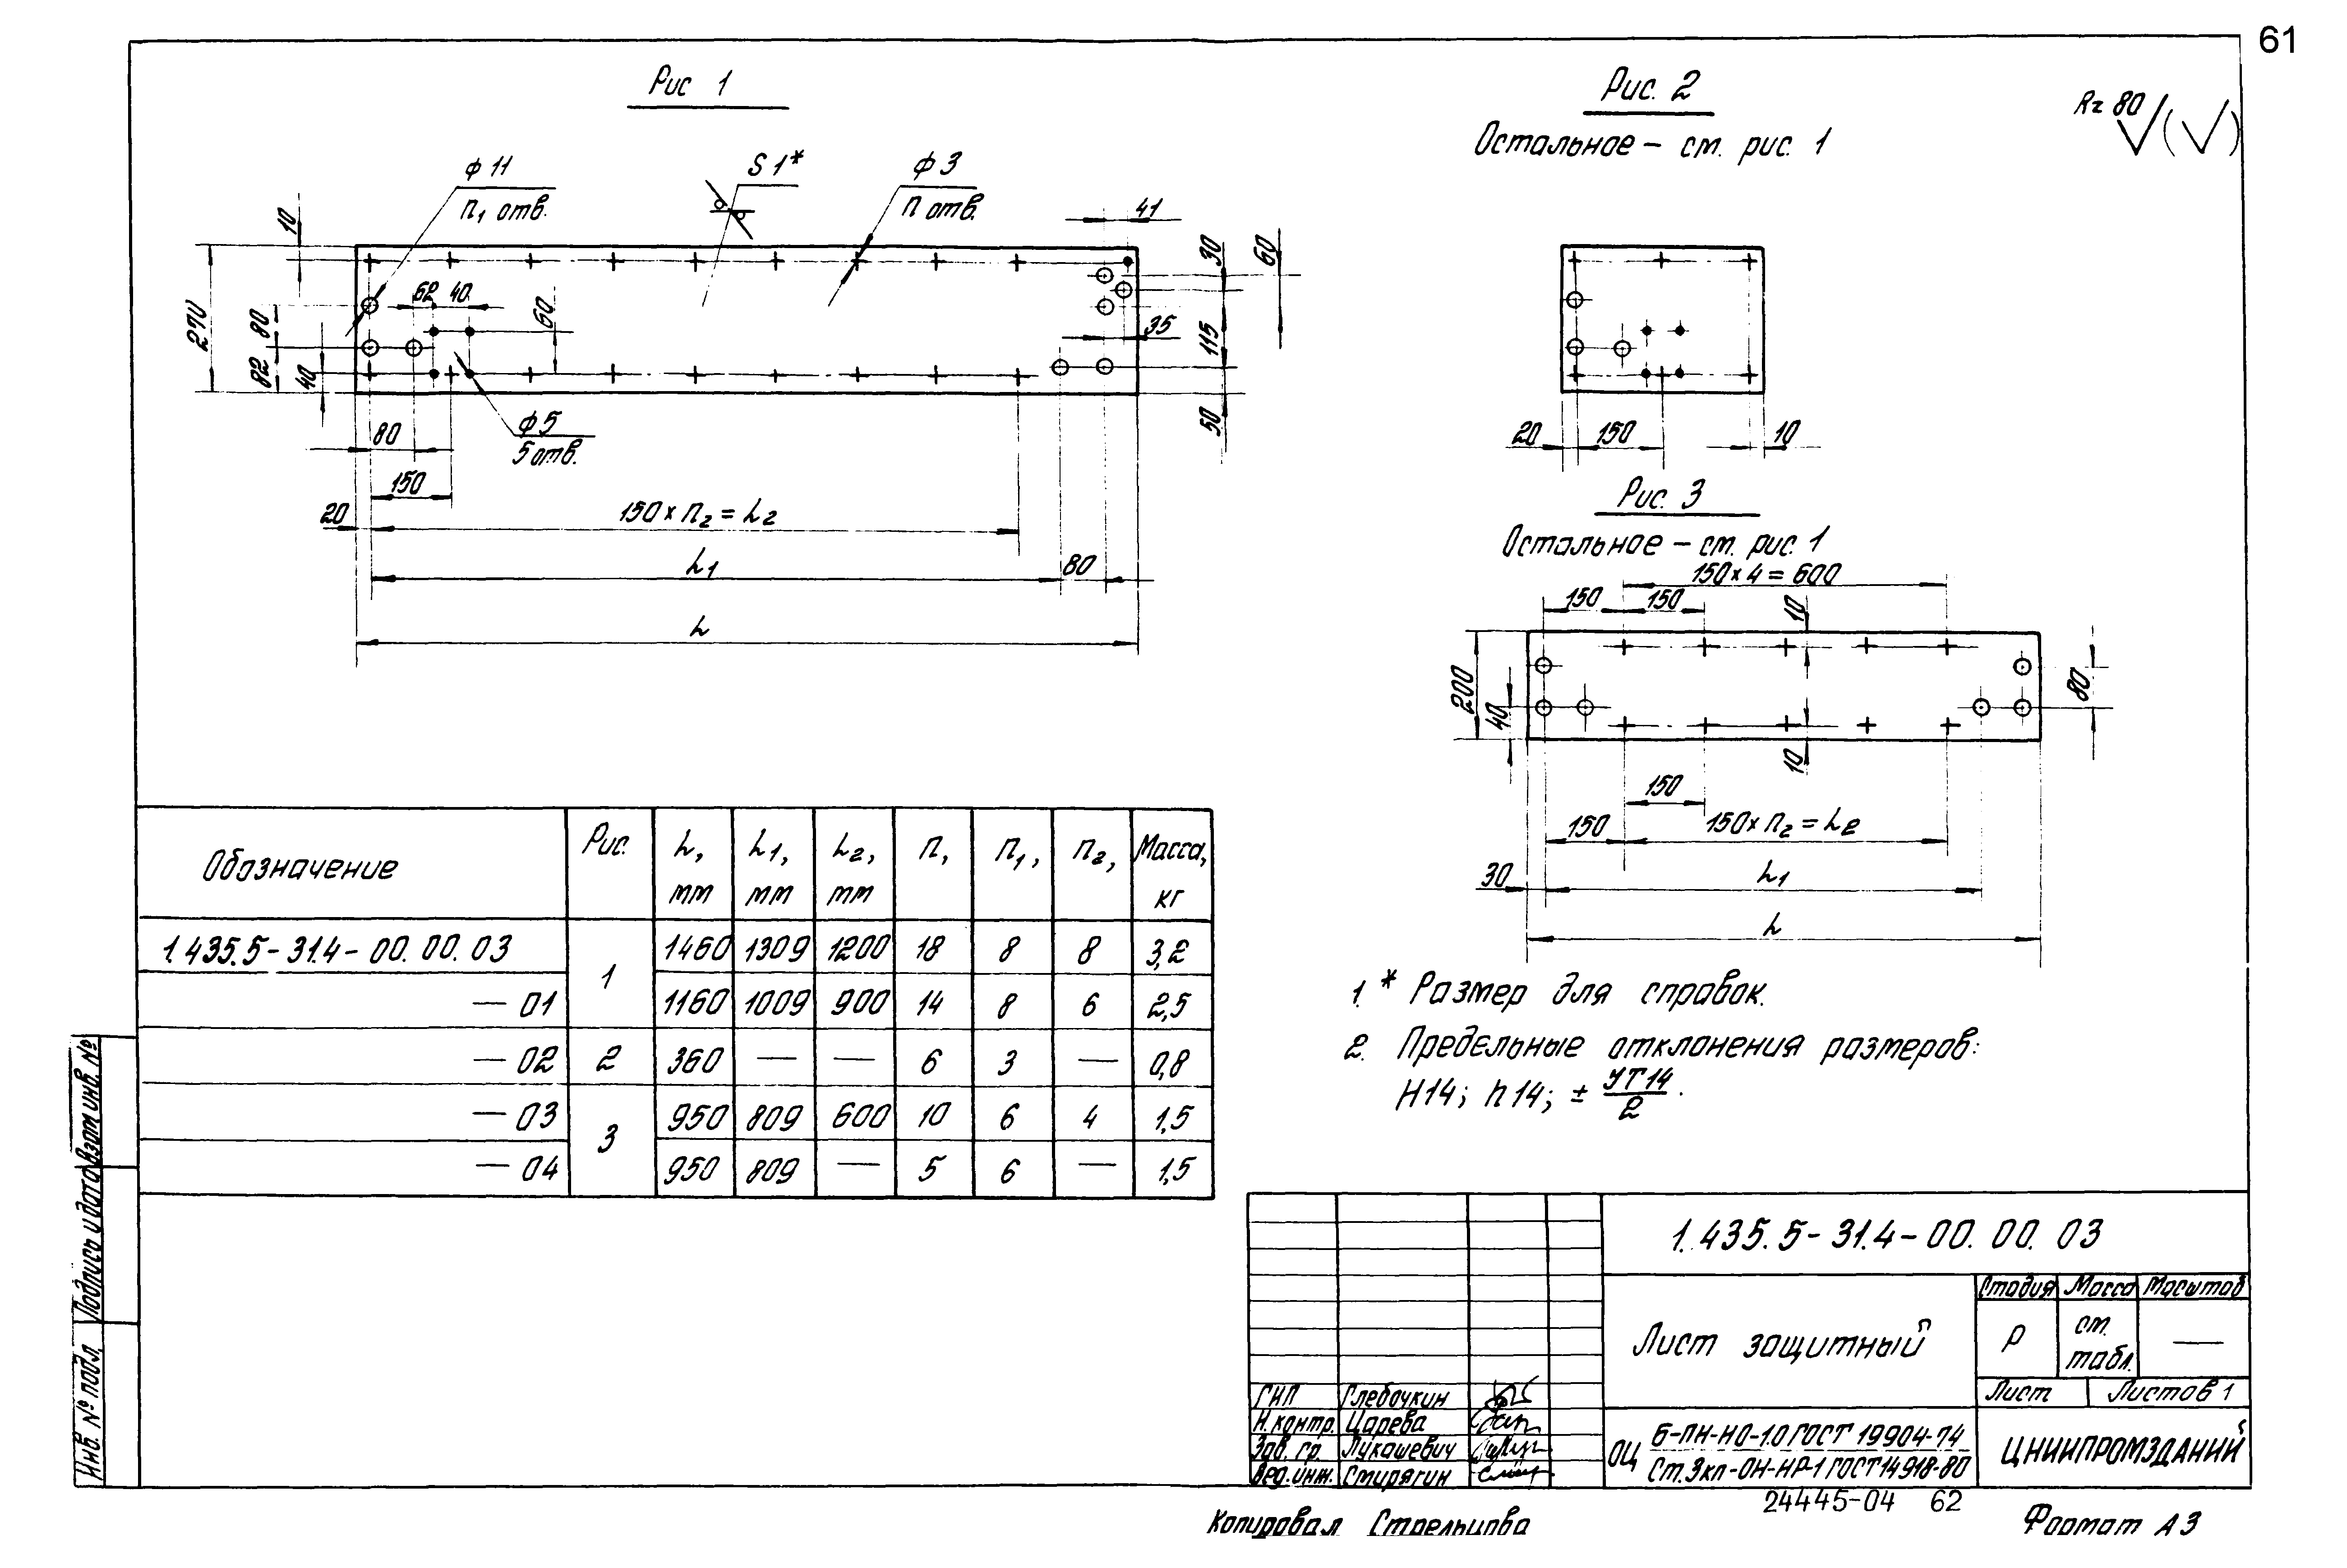 61
Рис 1
Φ 11
n₁ отв.
S 1*
Φ 3
n отв.
10
41
30
60
270
80
82
40
62 40
60
35
115
50
Φ 5
5 отв.
80
150
20
150 × n₂ = L₂
L₁
80
L
Рис. 2
Остальное – см. рис. 1
Rz 80
20
150
10
Рис. 3
Остальное – см. рис. 1
150 × 4 = 600
150
150
10
200
40
80
10
150
150
150 × n₂ = L₂
30
L₁
L
Обозначение Рис. L, мм L₁, мм L₂, мм n, n₁, n₂, Масса, кг
1.435.5-31.4-00.00.03 1 1460 1309 1200 18 8 8 3,2
— 01 1160 1009 900 14 8 6 2,5
— 02 2 360 — — 6 3 — 0,8
— 03 3 950 809 600 10 6 4 1,5
— 04 950 809 — 5 6 — 1,5
1. * Размер для справок.
2. Предельные отклонения размеров:
H14; h14; ± JT14/2.
1.435.5-31.4-00.00.03
Лист защитный
Стадия Масса Масштаб
Р см. табл. —
Лист Листов 1
ГИП Глебочкин
Н. контр. Царева
Зав. гр. Лукашевич
Вед. инж. Стирягин
ОЦ Б-ПН-НО-1.0 ГОСТ 19904-74
Ст.3кп-ОН-НР-1 ГОСТ 14918-80
ЦНИИПРОМЗДАНИЙ
24445-04 62
Копировал Стрельцова
Формат А3
Инв. № подл.
Подпись и дата
Взам. инв. №